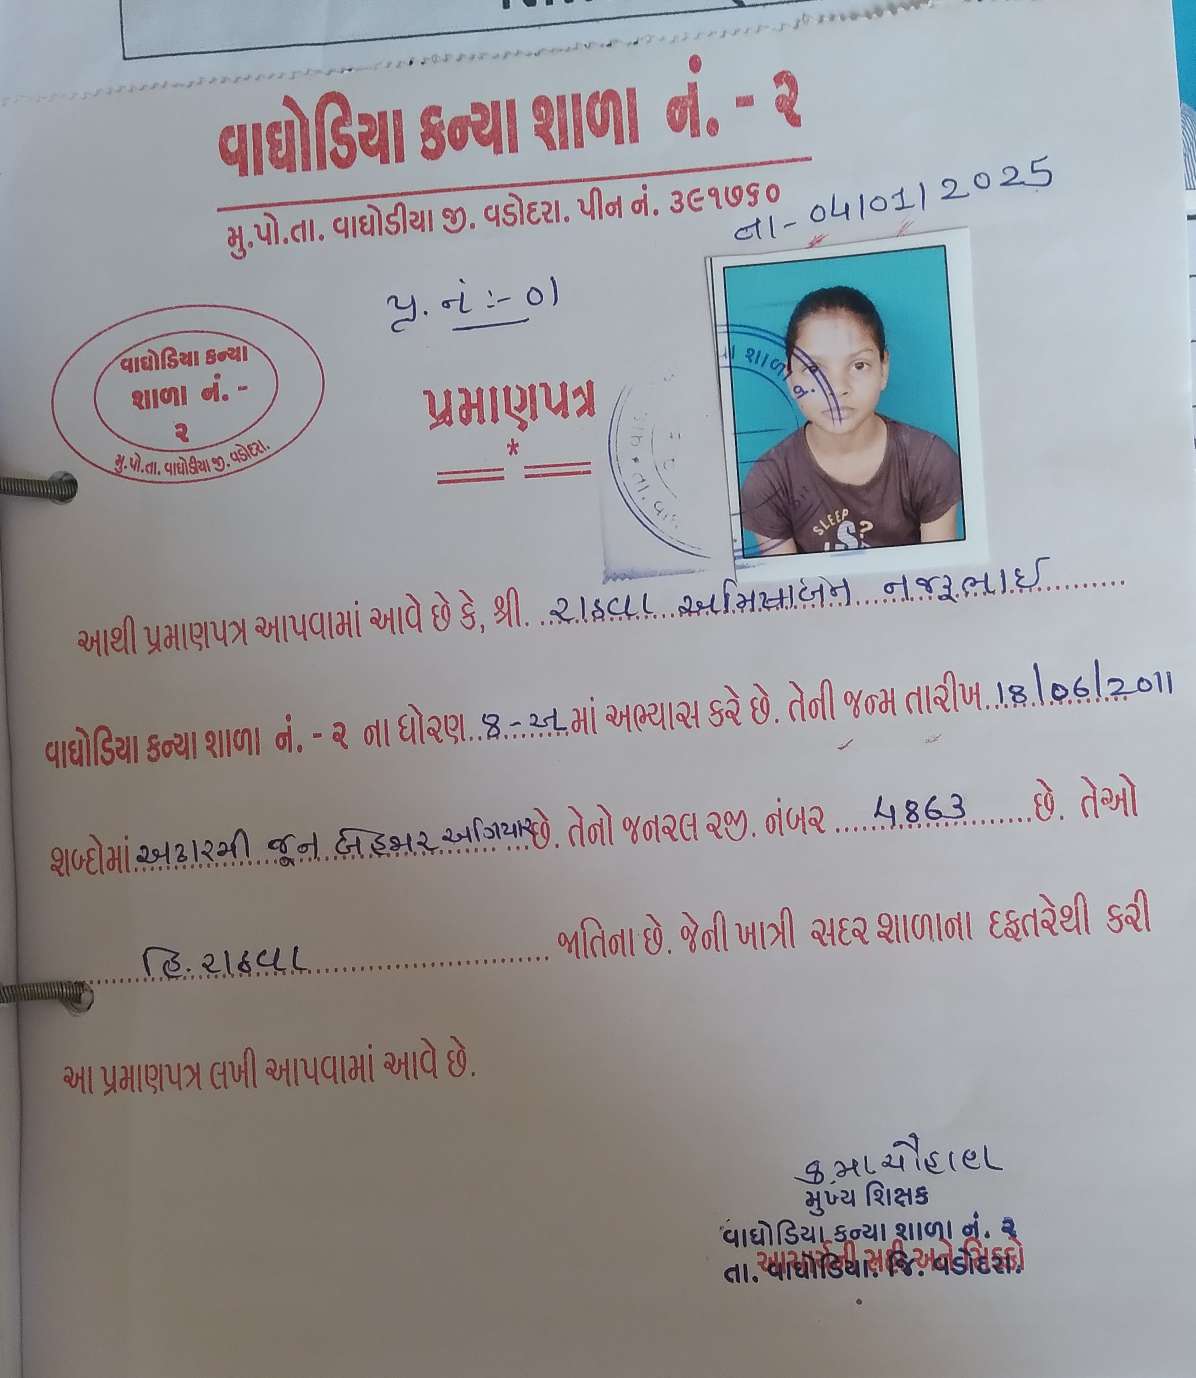 વાઘોડિયા કન્યા શાળા નં. - ૨
મુ.પો.તા. વાઘોડીયા જી. વડોદરા. પીન નં. ૩૯૧૭૬૦
તા- 04/01/2025
પ્ર. નં :- 01
વાઘોડિયા કન્યા
શાળા નં. -
૨
મુ.પો.તા. વાઘોડીયા જી. વડોદરા.
પ્રમાણપત્ર
*
શાળા નં.
SLEEP
?
આથી પ્રમાણપત્ર આપવામાં આવે છે કે, શ્રી. રાઠવા અમિષાબેન નજરૂભાઈ
વાઘોડિયા કન્યા શાળા નં. - ૨ ના ધોરણ. 8 - અ માં અભ્યાસ કરે છે. તેની જન્મ તારીખ 18/06/2011
શબ્દોમાં અઢારમી જૂન બેહજાર અગિયાર છે. તેનો જનરલ રજી. નંબર 4863 છે. તેઓ
હિ. રાઠવા જાતિના છે. જેની ખાત્રી સદર શાળાના દફતરેથી કરી
આ પ્રમાણપત્ર લખી આપવામાં આવે છે.
મુખ્ય શિક્ષક
વાઘોડિયા કન્યા શાળા નં. ૨
આચાર્યની સહી અને સિક્કો
તા. વાઘોડિયા. જિ. વડોદરા.